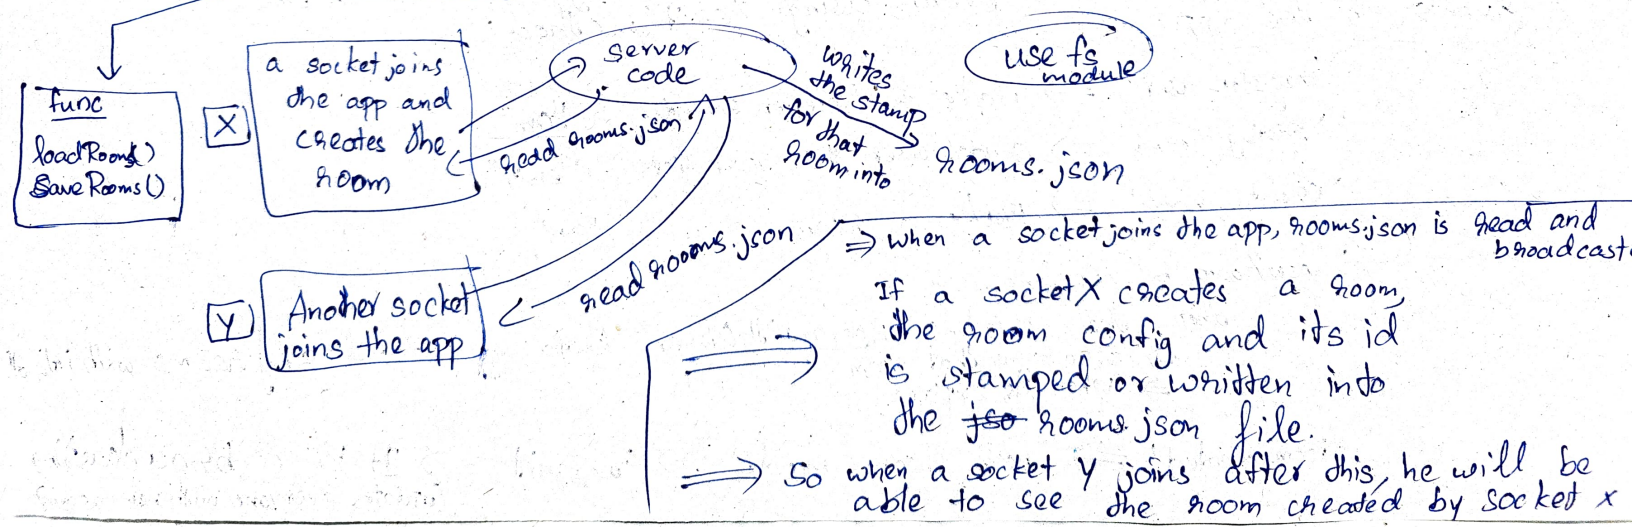 func
loadRooms()
SaveRooms()
X
a socket joins
the app and
creates the
room
server
code
read rooms.json
writes
the stamp
for that
room into
rooms.json
use fs
module
Y
Another socket
joins the app
read rooooms.json
⇒ when a socket joins the app, rooms.json is read and
broadcast
If a socket X creates a room,
the room config and its id
is stamped or written into
the jso rooms.json file.
⇒ So when a socket Y joins after this, he will be
able to see the room created by socket X